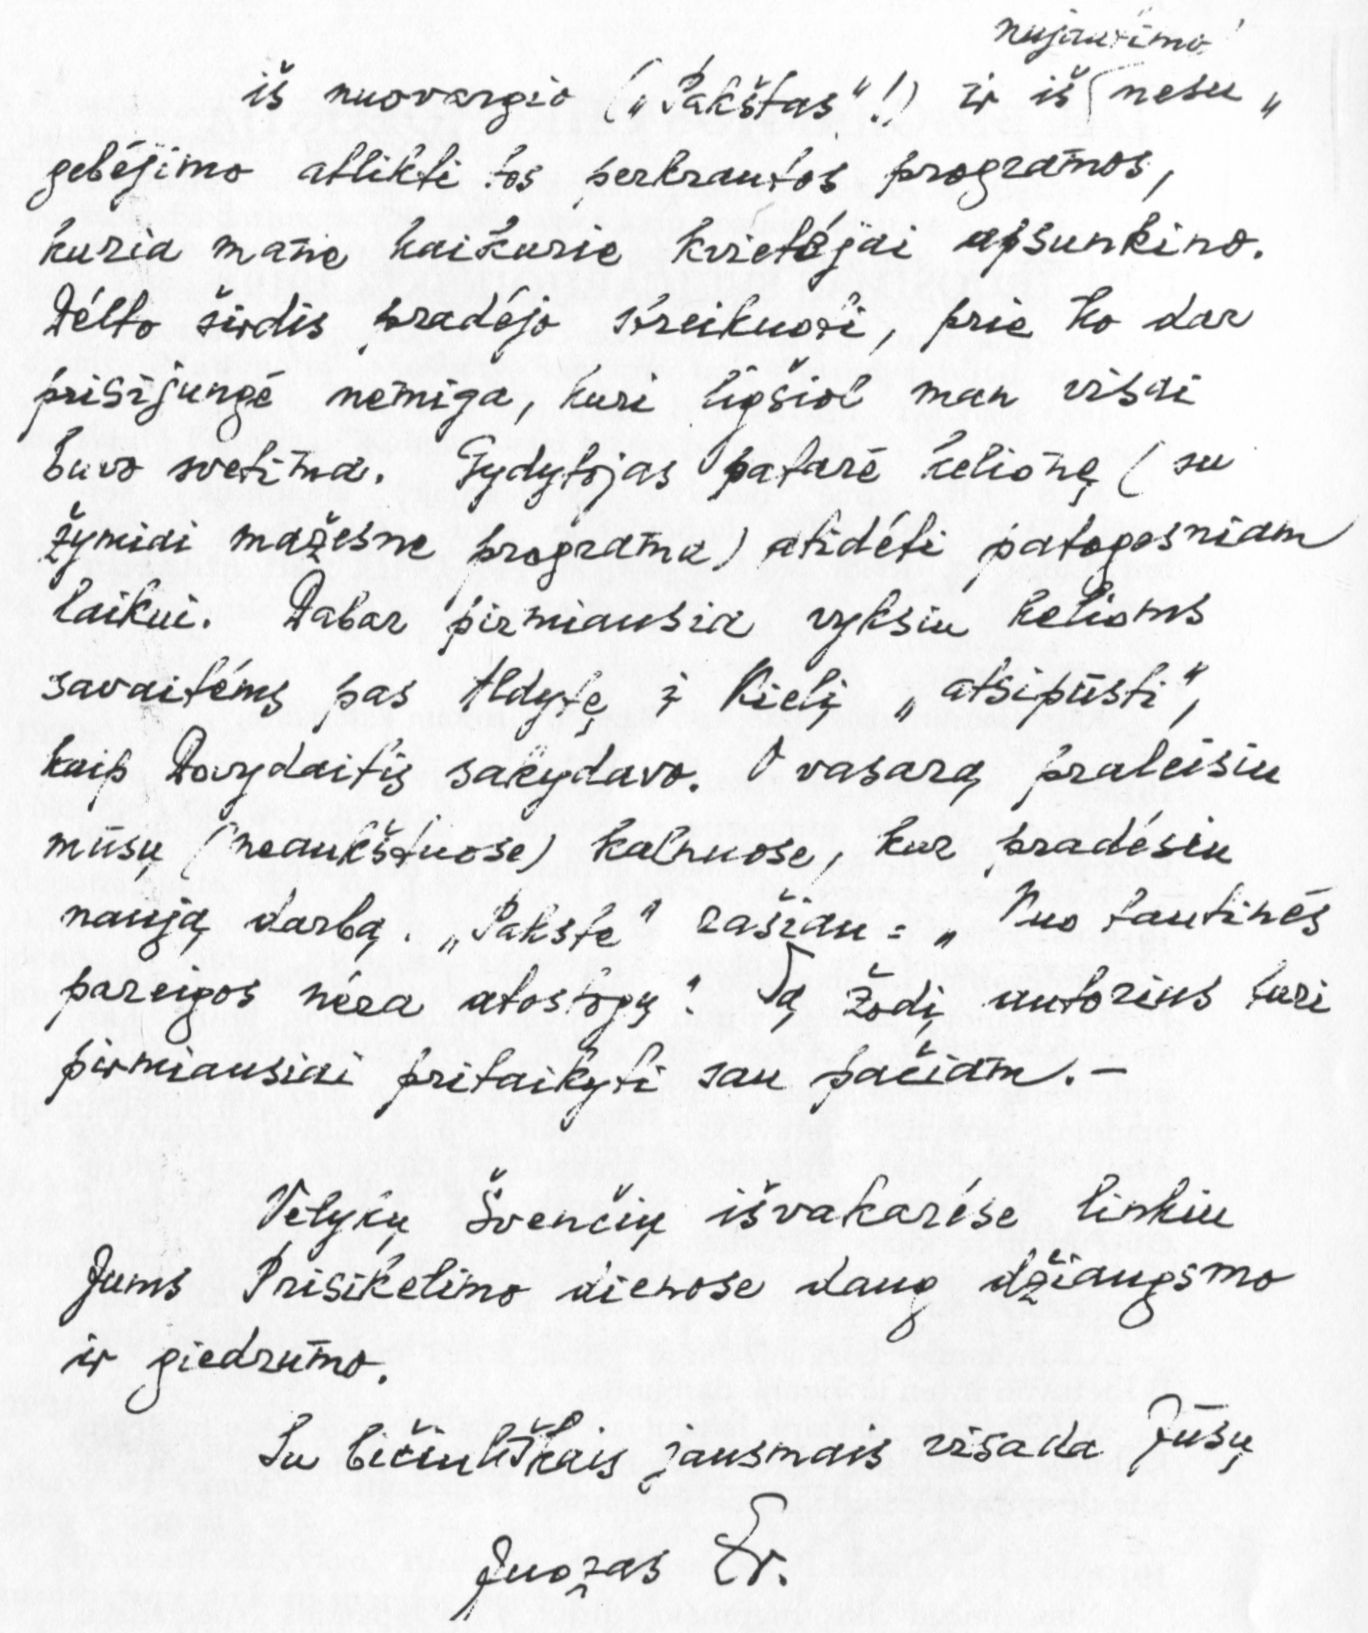 nujautimo
iš nuovargio („Pakštas“!) ir iš nesu„
gebėjimo atlikti tos perkrautos programos,
kuria mane kaikurie kvietėjai apsunkino.
Dėlto širdis pradėjo streikuoti, prie ko dar
prisijungė nemiga, kuri ligšiol man visai
buvo svetima. Gydytojas patarė kelionę (su
žymiai mažesne programa) atidėti patogesniam
laikui. Dabar pirmiausia vyksiu kelioms
savaitėms pas Aldytę į Kielį „atsipūsti“,
kaip Dovydaitis sakydavo. O vasarą praleisiu
mūsų (neaukštuose) kalnuose, kur pradėsiu
naują darbą. „Pakšte“ rašiau: „Nuo tautinės
pareigos nėra atostogų“. Tą žodį autorius turi
pirmiausiai pritaikyti sau pačiam. –
Velykų Švenčių išvakarėse linkiu
Jums Prisikėlimo dienose daug džiaugsmo
ir giedrumo.
Su bičiuliškais jausmais visada Jūsų
Juozas Er.